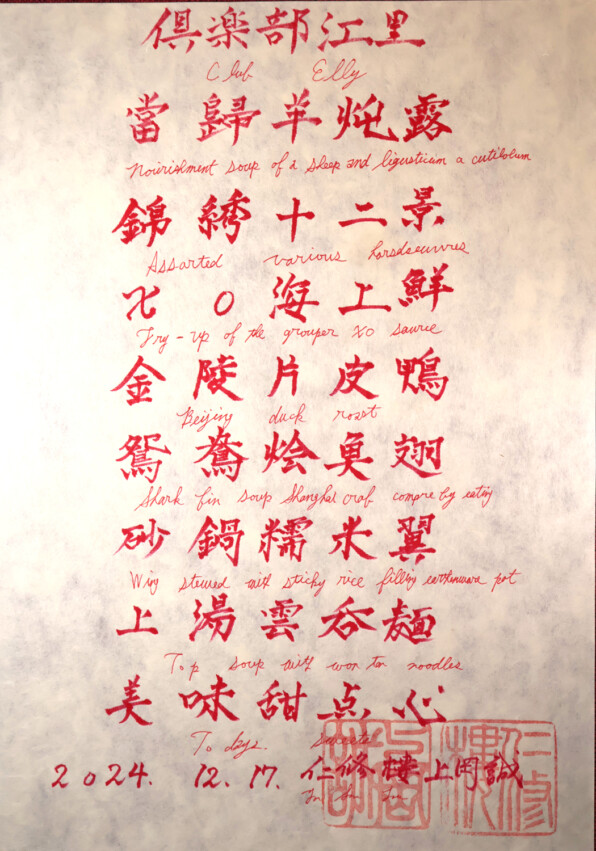 倶楽部江里
Club Elly
當歸羊炖露
Nourishment soup of a sheep and ligusticum a cutilobum
錦綉十二景
Assarted various horsdseuvres
X O 海上鮮
Fry-up of the grouper XO saurce
金陵片皮鴨
Beijing duck roast
鴛鴦烩魚翅
Shark fin soup Shanghai crab compre by eating
砂鍋糯米翼
Wing stewed with sticky rice filling earthenware pot
上湯雲呑麺
Top soup with won ton noodles
美味甜点心
To days.
2024. 12. 17. 仁修樓上岡誠